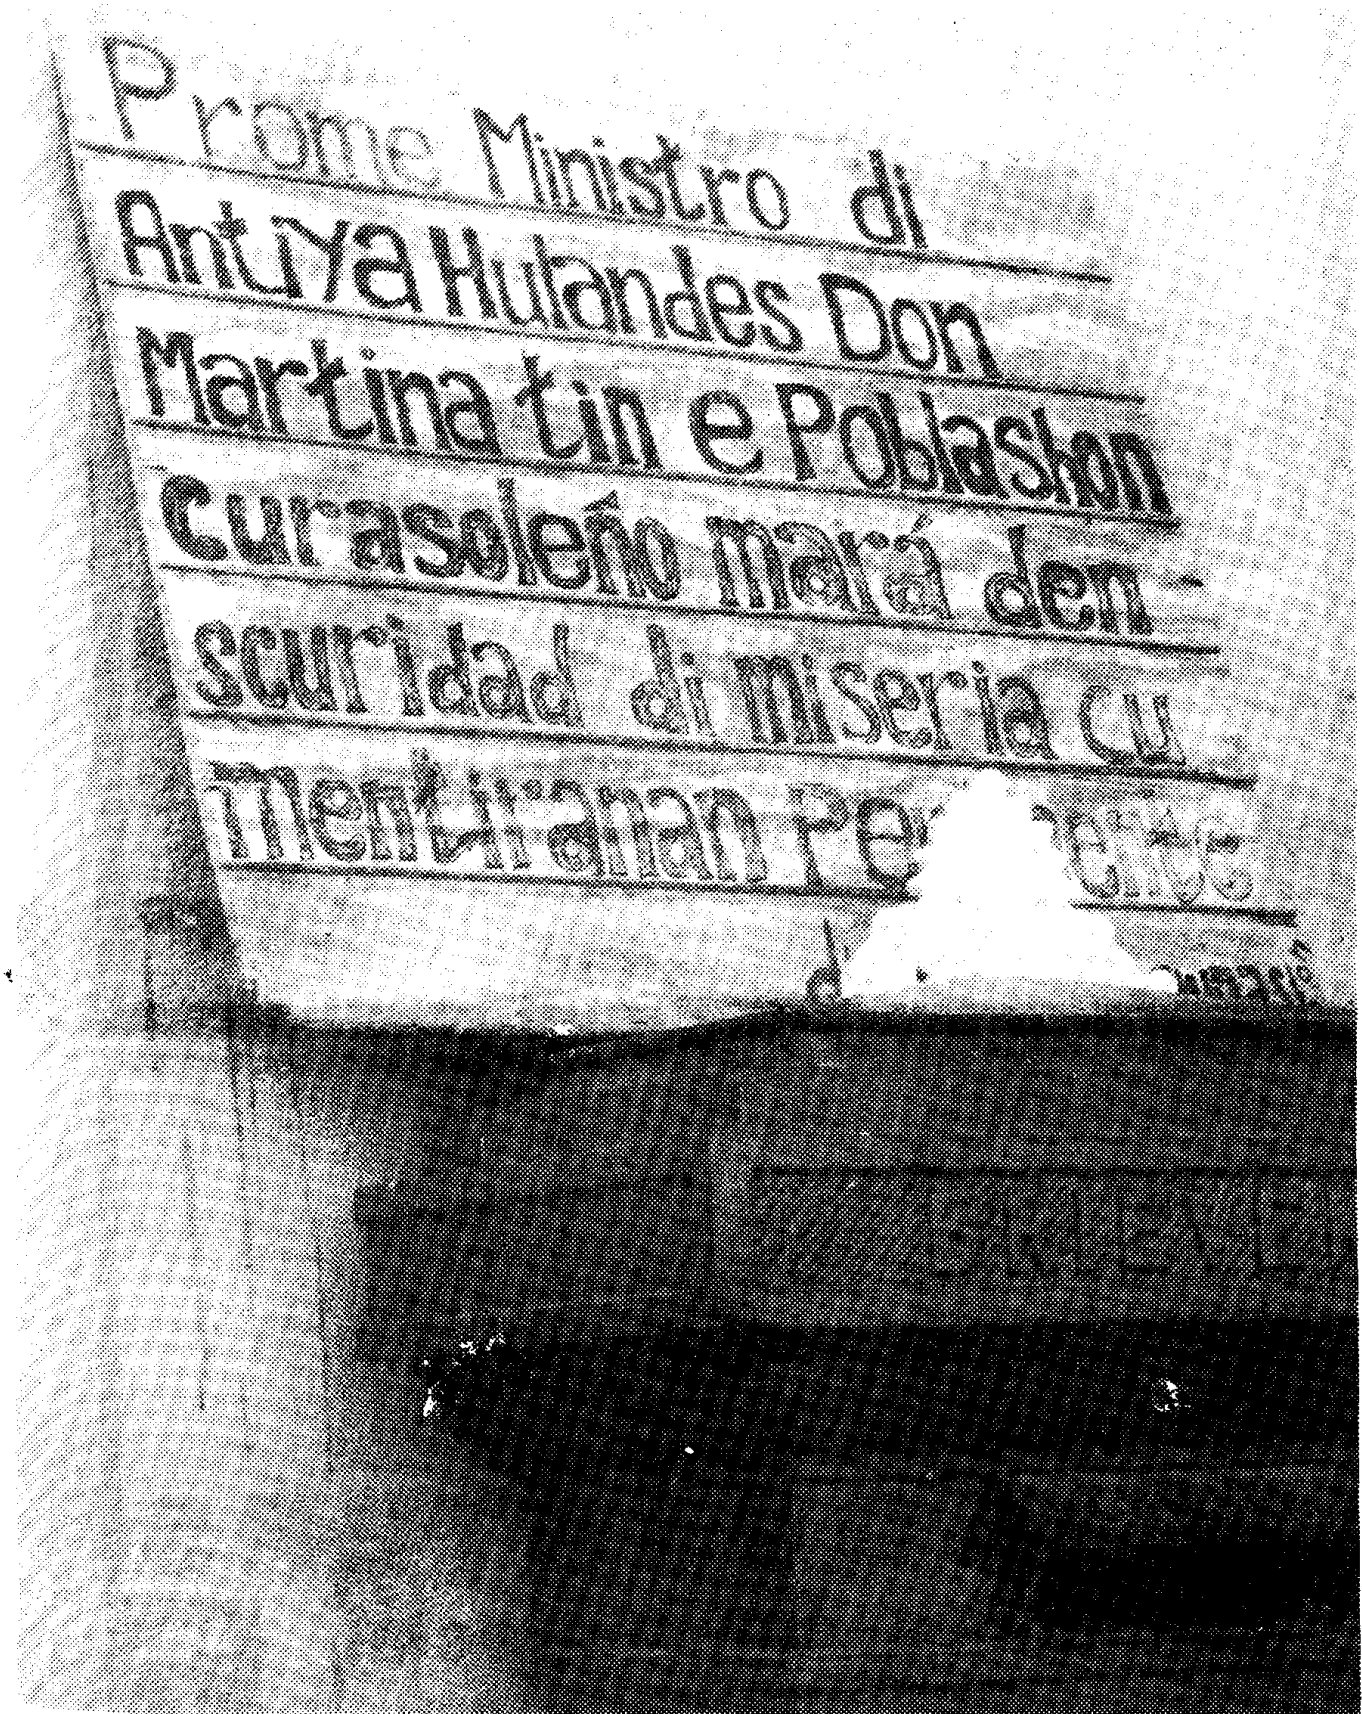 Prome Ministro di
Antiya Hulandes Don
Martina tin e Poblashon
Curasoleño mará den
scuridad di miseria cu
mentiranan